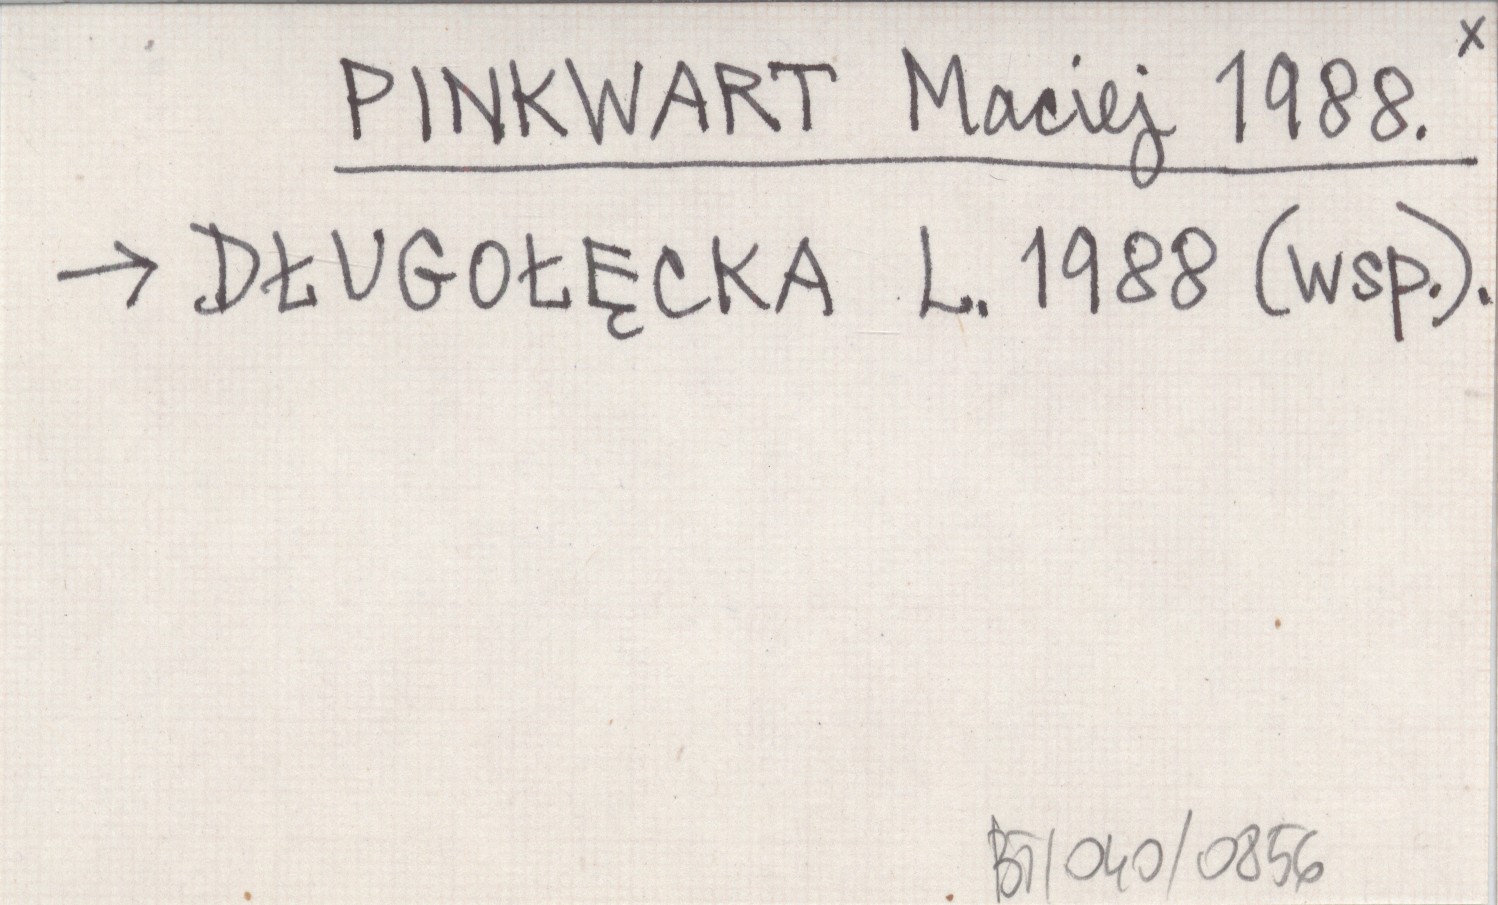 x
PINKWART Maciej 1988.
→ DŁUGOŁĘCKA L. 1988 (wsp.).
BT/040/0856